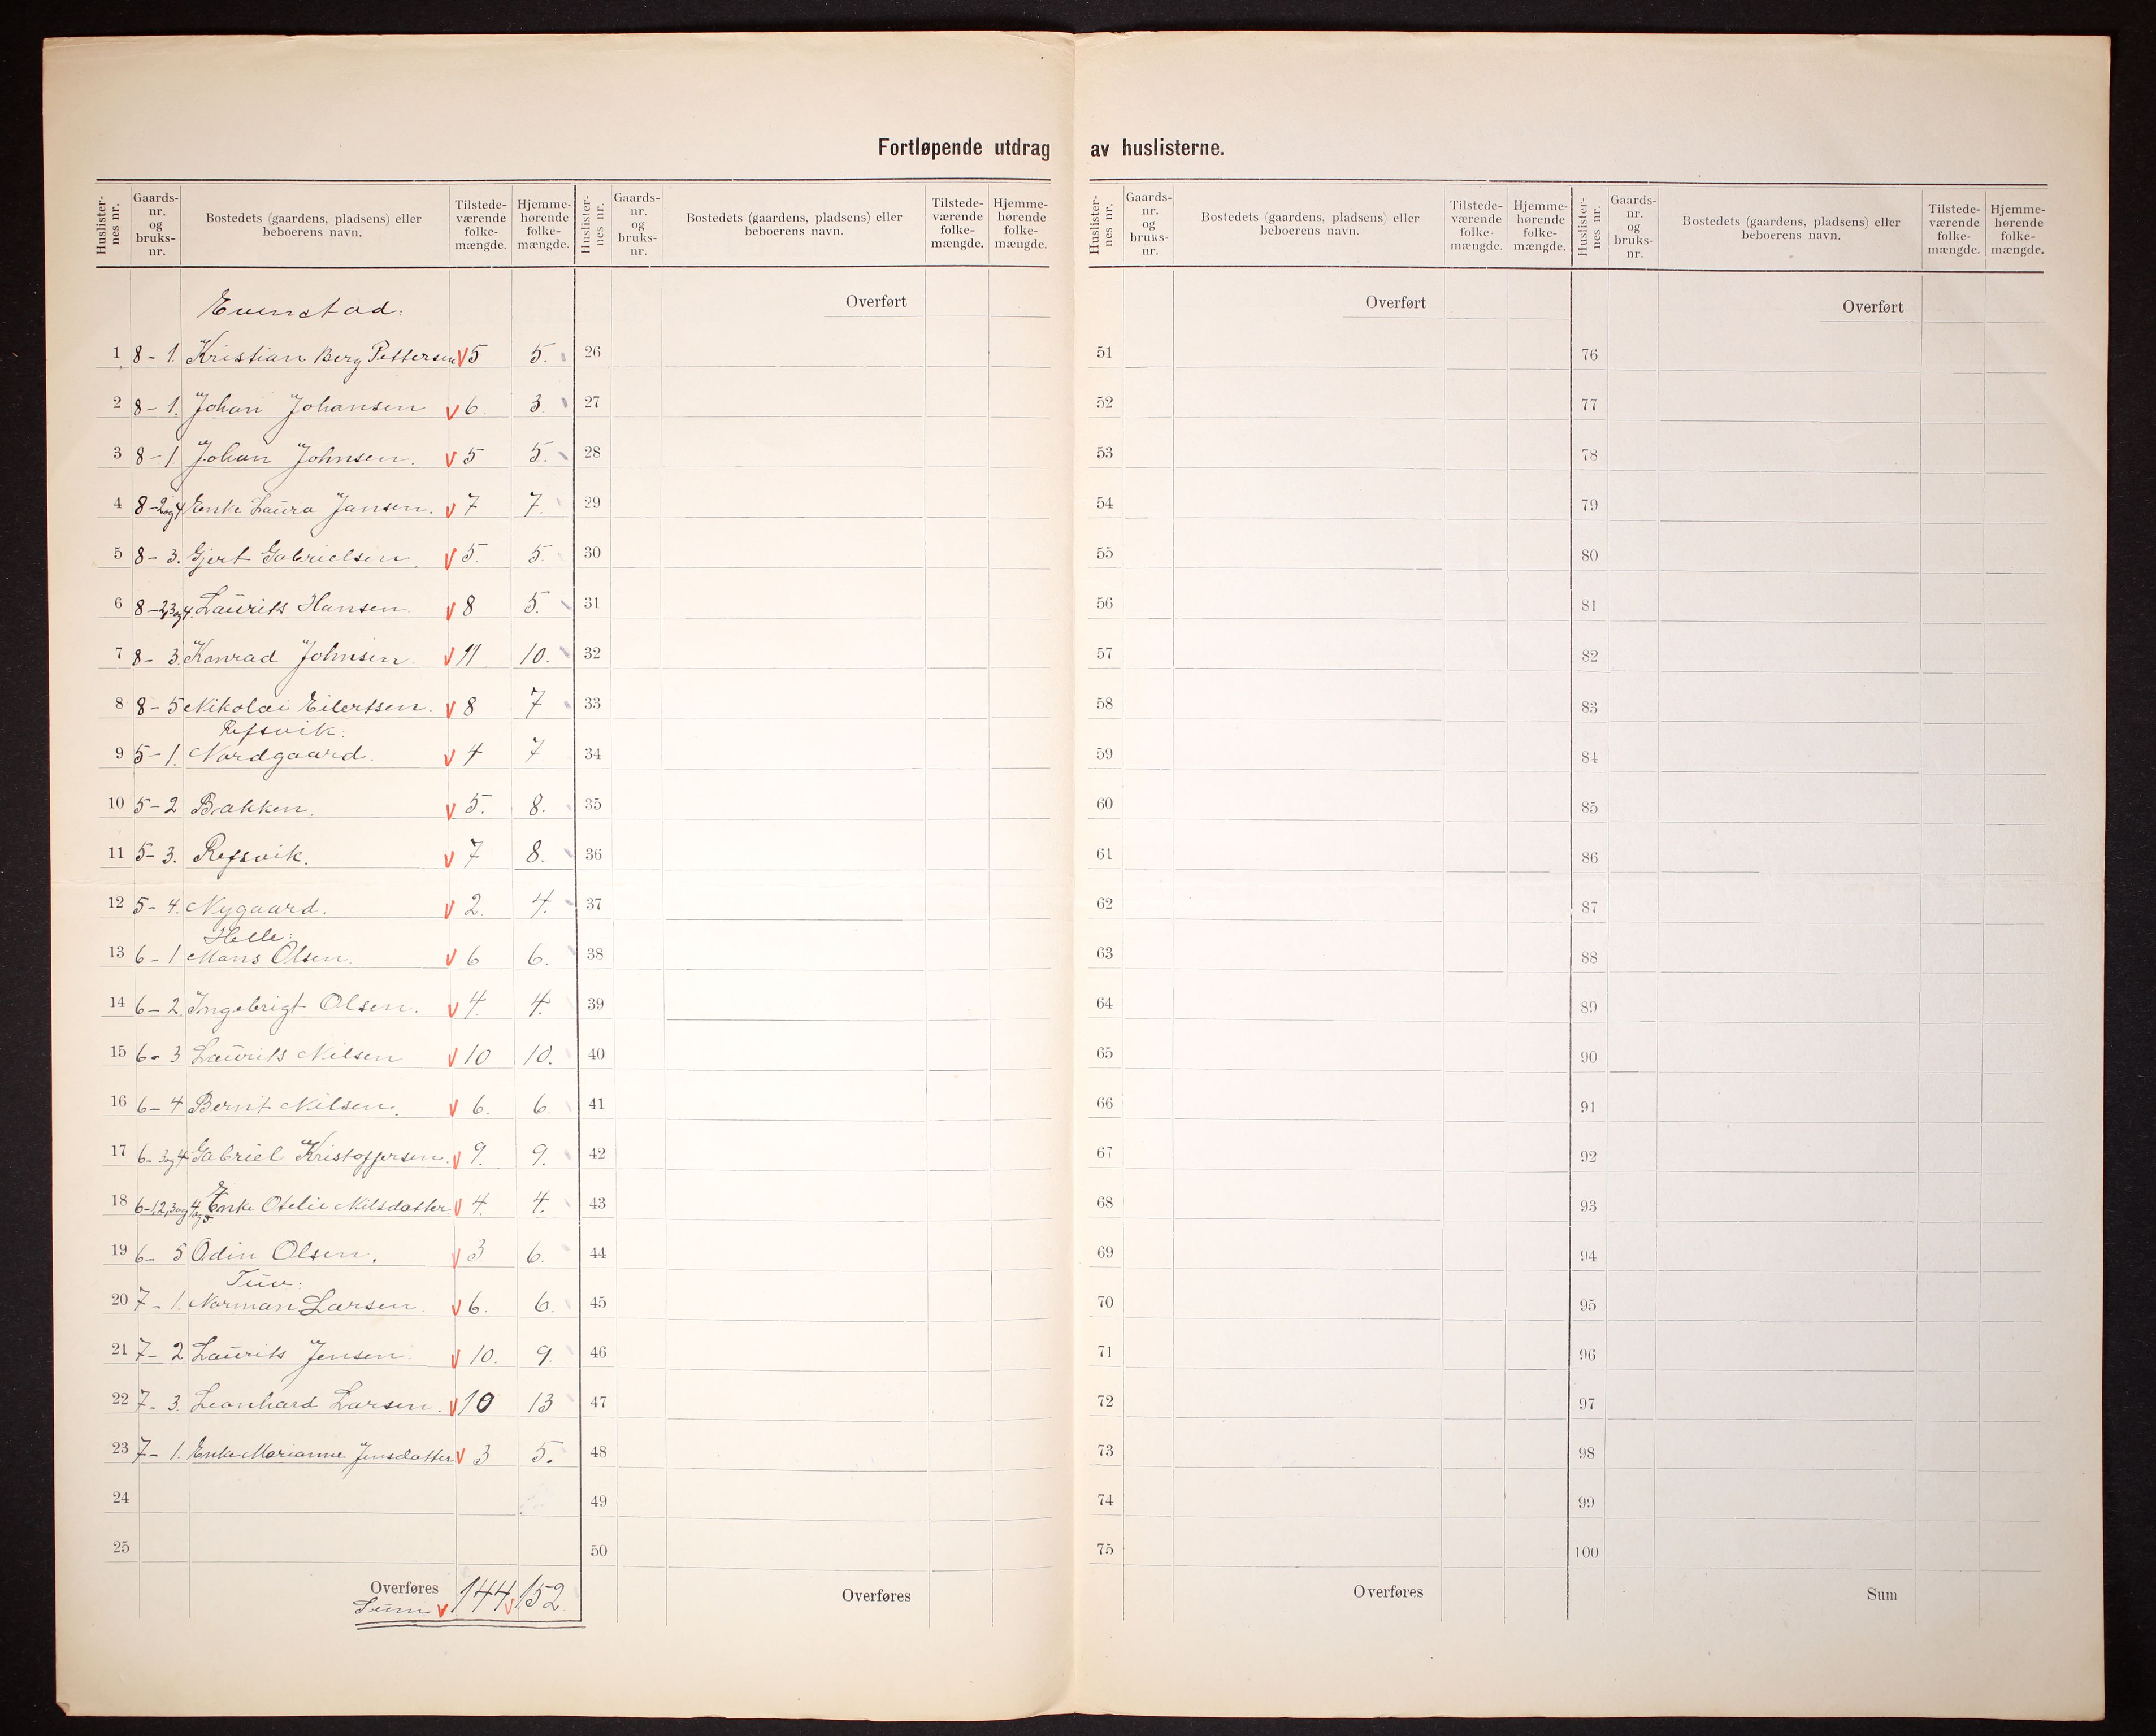 Fortløpende utdrag av huslisterne.
Huslister-nes nr. Gaards-nr. og bruks-nr. Bostedets (gaardens, pladsens) eller beboerens navn. Tilstede-værende folke-mængde. Hjemme-hørende folke-mængde.
Evenstad:
1 8-1. Kristian Berg Pettersen V 5 5.
2 8-1. Johan Johansen V 6. 3.
3 8-1 Johan Johnsen. V 5 5.
4 8-2og4 Enke Laura Jansen. V 7 7.
5 8-3. Gjert Gabrielsen. V 5. 5
6 8-2,3og4. Laurits Hansen V 8 5.
7 8-3. Konrad Johnsen. V 11 10.
8 8-5 Nikolai Eilertsen. V 8 7
Refsvik:
9 5-1. Nordgaard. V 4 7
10 5-2 Bakken. V 5. 8.
11 5-3. Refsvik. V 7 8.
12 5-4. Nygaard. V 2. 4.
Helle:
13 6-1 Mons Olsen. V 6 6.
14 6-2. Ingebrigt Olsen. V 4. 4.
15 6-3 Laurits Nilsen V 10 10.
16 6-4 Bernt Nilsen. V 6. 6
17 6-3og4 Gabriel Kristoffersen. V 9. 9.
18 6-1,2,3og4 og5 Enke Otelie Nilsdatter V 4. 4.
19 6-5 Odin Olsen. V 3 6.
Tuv:
20 7-1. Norman Larsen. V 6. 6.
21 7-2 Laurits Jensen V 10. 9.
22 7-3. Leonhard Larsen. V 10 13
23 7-1. Enke Marianne Jensdatter V 3 5.
24
25
Overføres 144 152.
Sum V V
Huslister-nes nr. Gaards-nr. og bruks-nr. Bostedets (gaardens, pladsens) eller beboerens navn. Tilstede-værende folke-mængde. Hjemme-hørende folke-mængde.
Overført
26
27
28
29
30
31
32
33
34
35
36
37
38
39
40
41
42
43
44
45
46
47
48
49
50
Overføres
Huslister-nes nr. Gaards-nr. og bruks-nr. Bostedets (gaardens, pladsens) eller beboerens navn. Tilstede-værende folke-mængde. Hjemme-hørende folke-mængde.
Overført
51
52
53
54
55
56
57
58
59
60
61
62
63
64
65
66
67
68
69
70
71
72
73
74
75
Overføres
Huslister-nes nr. Gaards-nr. og bruks-nr. Bostedets (gaardens, pladsens) eller beboerens navn. Tilstede-værende folke-mængde. Hjemme-hørende folke-mængde.
Overført
76
77
78
79
80
81
82
83
84
85
86
87
88
89
90
91
92
93
94
95
96
97
98
99
100
Sum